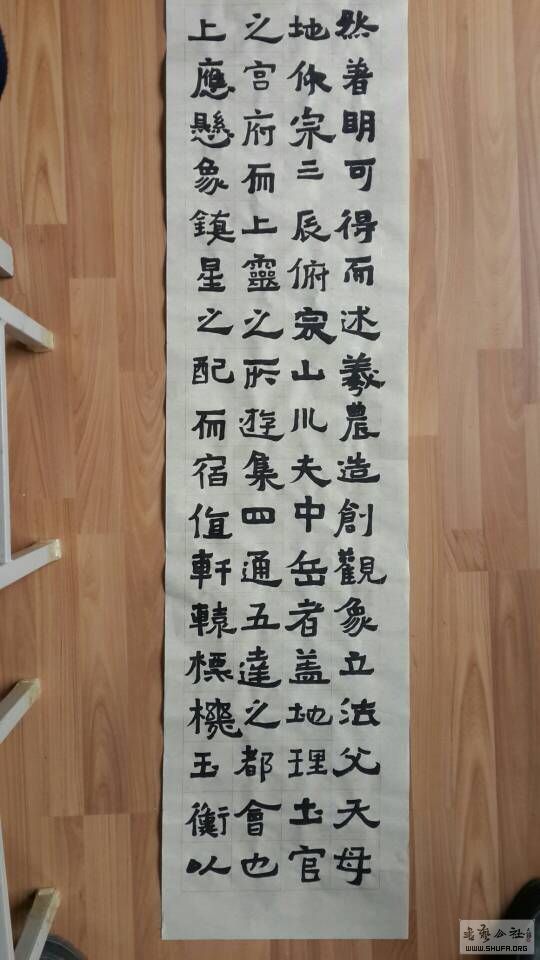 然著明可得而述羲農造創觀象立法父天母
地仰宗三辰俯宗山川夫中岳者蓋地理土官
之宮府而上靈之所遊集四通五達之都會也
上應懸象鎮星之配而宿值軒轅標玉衡以
WWW.SHUFA.ORG